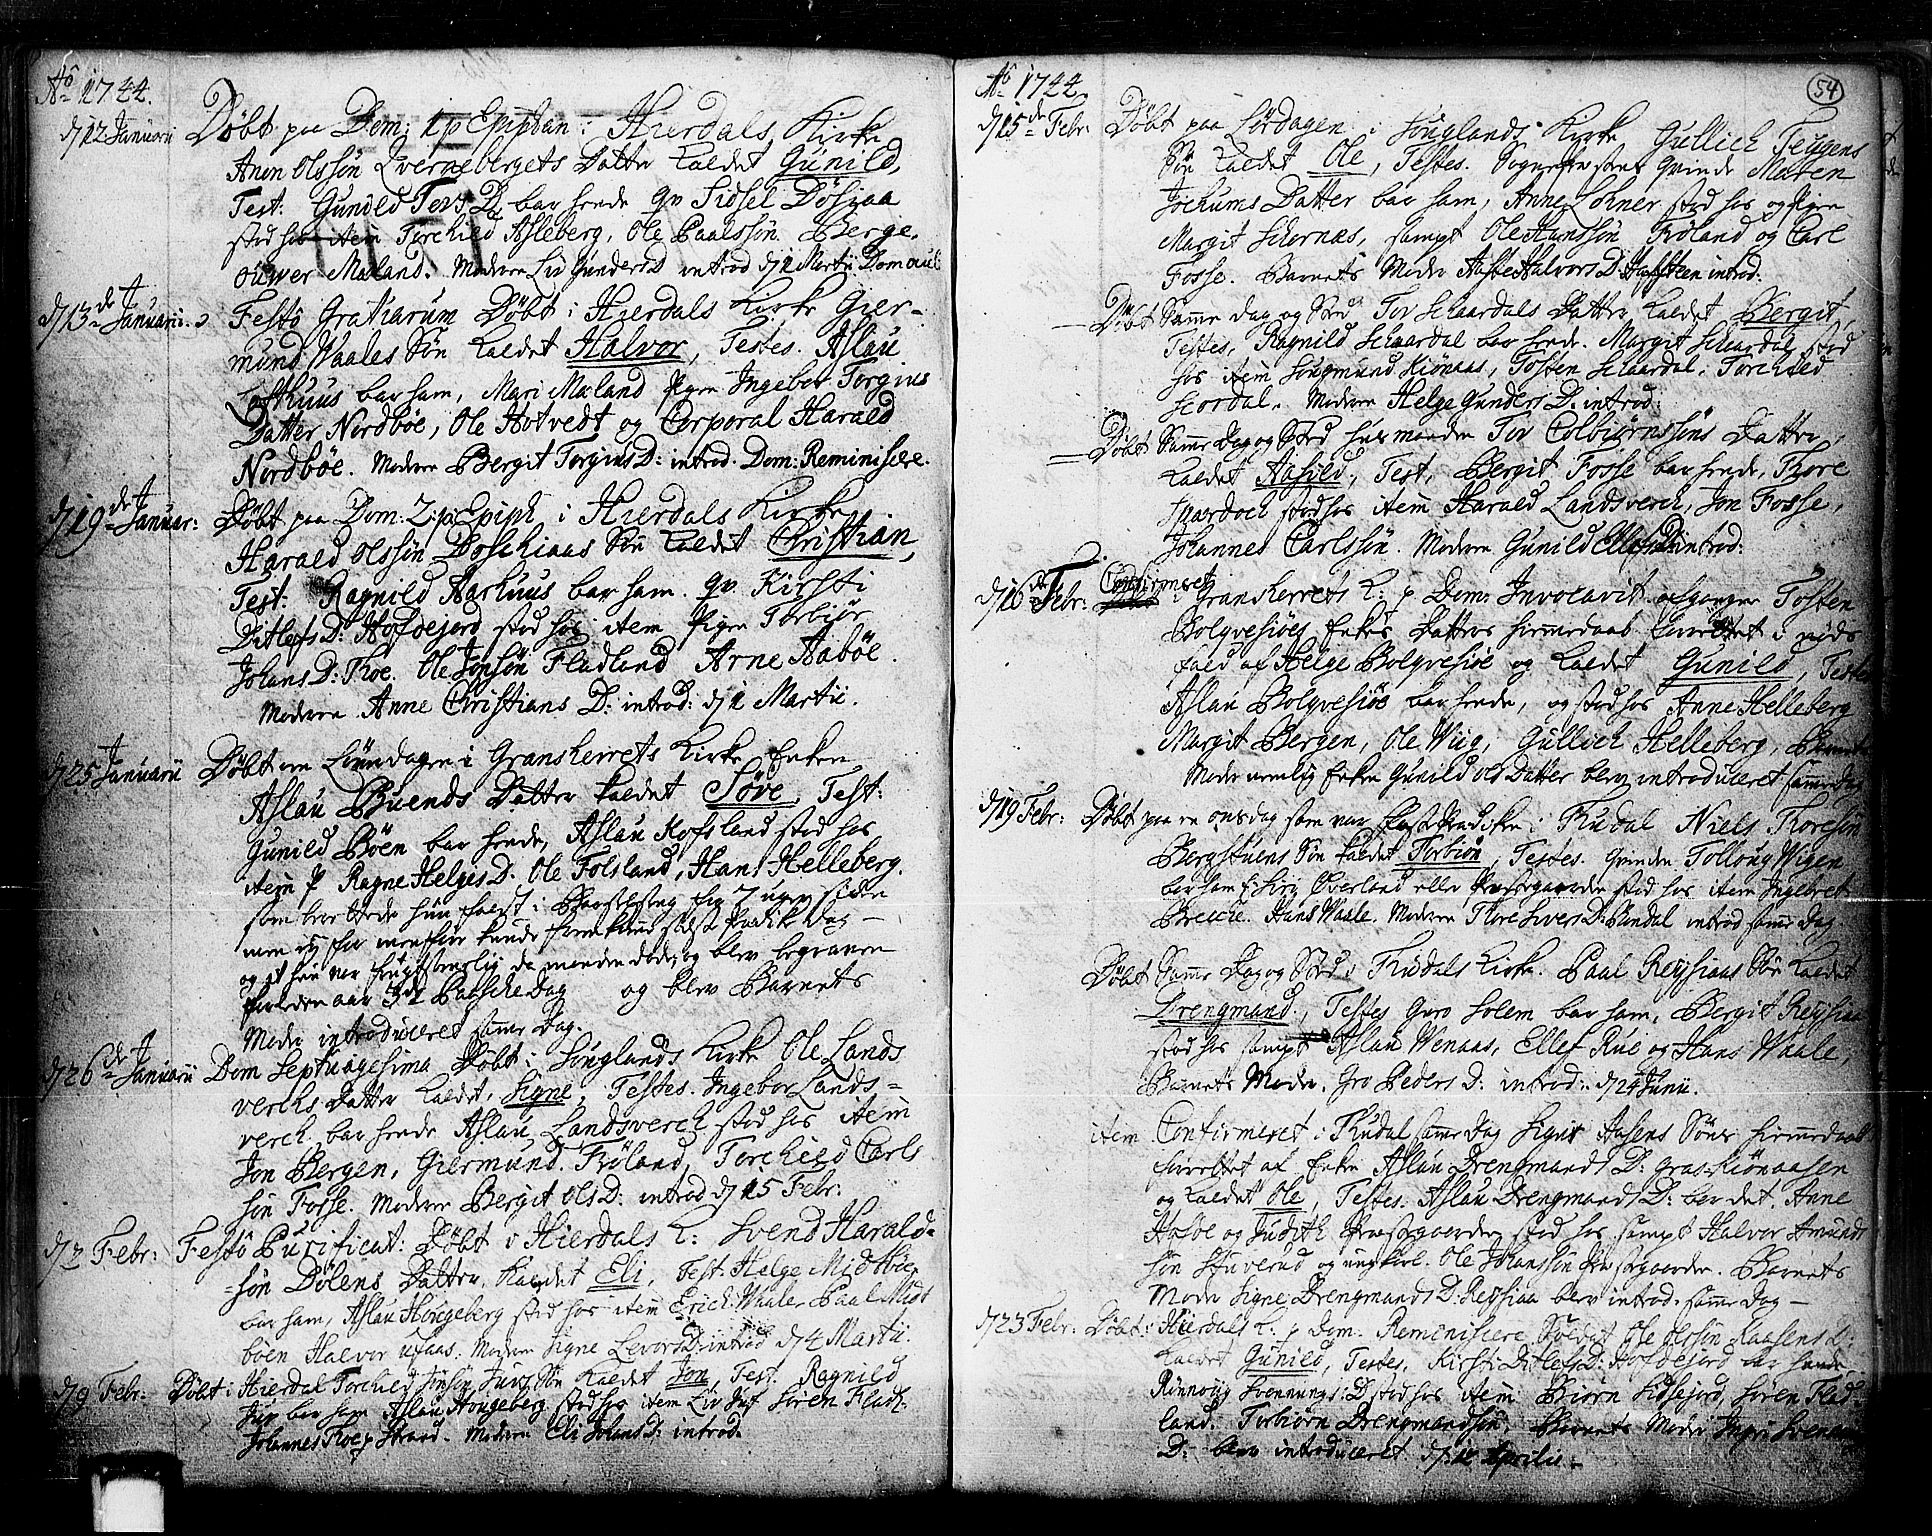 Aō 1744.
d/12 Januarii Døbt paa Dom: 1 p Epiphan: i Hierdals Kirke
Anon Olssøn Qvernebergets Datter kaldet Gunild,
Test: Gunild Tovs D bar hende qv Sidsel Døsiaa
stod hos item Torchild Asleberg, Ole Paalssøn Berge,
Oliwer Mæland. Moderen Liv Gunders D introd d/1 Martii Dom Ocul
d/13de Januarii. Festo Gratiarum Døbt i Hierdals Kirke Gier-
mund Waales Søn kaldet Halvor, Testes. Aslau
Østhuus bar ham, Mari Mæland Pigen Ingebor Torgius
Datter Nordbøe, Ole Hotvedt og Corporal Harald
Nordbøe. Moderen Bergit Torgius D: introd. Dom: Reminiscere.
d/19de Januar: Døbt paa Dom: 2 p Epiph i Hierdals Kirke
Harald Olssøn Boschiaas Søn kaldet Christian,
Test: Ragnild Aarhuus bar ham. qv. Kirsti
Ditlefs D: Hofdejord stod hos item Pigen Torbiør
Johans D: Thoe. Ole Jonsøn Fladland Arne Aabøe.
Moderen Anne Christians D: introd: d/1 Martii.
d/25 Januarii Døbt om Løverdagen i Gransherrets Kirke Enken
Aslau Buends Datter kaldet Søve, Test:
Gunild Bøen bar hende, Aslau Kofsland stod hos
item P Ragne Helges D. Ole Folsland, Hans Helleberg.
som berettede hun fødst i Barselseng for 7 uger siden
men ey før kunde fremkomme sidst Prædike Dag
og at hun var frugtsommelig da manden døde og blev begraven
forleden aar 3de Paasche Dag og blev Barnets
Moder introduceret samme Dag.
d/26de Januarii Dom Septuagesima Døbt i Songlands Kirke Ole Lands
verchs Datter kaldet, Signe, Testes. Ingebor Lands-
verch bar hende Aslau Landsverch stod hos item
Jon Bergen, Giermund Frøland, Torchild Carls
søn Fosse. Moderen Bergit Ols D: introd d/15 Febr:
d/2 Febr: Festo Purificat: Døbt i Hierdals K: Svend Harald-
søn Dølens Datter, kaldet Eli, Test: Helge Midtbøe
bar ham, Aslau Hongeberg stod hos item Erich Waale Paal Midt
bøen Halvor Ufaas. Moderen Signe Levors D introd d/4 Martii
d/9 Febr: Døbt i Hierdal Torchild Jonsøn Juvs Søn kaldet Jon, Test. Ragnild
Juv bar ham Aslau Hongeberg stod hos item Liv Juf Søren Fladl:
Johannes Thoe p Strand. Moderen Eli Johans D: introd.
Aō 1744.
54
d/15de Febr: Døbt paa Lørdagen i Songlands Kirke Gullich Teygens
Søn kaldet Ole, Testes. Sogneprestens Qvinde Maren
Jochums Datter bar ham, Anne Lohner stod hos og Pigen
Margit Schornæs, sampt Ole Hanssøn Frøland og Carl
Fosse. Barnets Moder Aaste Halvors D: introd:
Døbt Samme Dag og Sted Tov Schaardals Datter kaldet Bergit,
Testes, Ragnild Schaardal bar hende. Margit Schaardal stod
hos item Songmund Kiönaas, Tosten Schaardal, Torchild
Scordal. Moderen Helge Gunders D: introd:
Døbt Samme Dag og Sted husmanden Tov Colbiørnsøns Datter,
kaldet Aasild, Test, Bergit Fosse bar hende, Thore
Spærdoch stod hos item Harald Landsverch, Jon Fosse,
Johannes Carlssøn. Moderen Gunild Ellefs D introd:
d/16de Febr: Confirmeret i Gransherrets K: p Dom Invocavit afgangne Tosten
Bolqvesiøes Enkes Datters hiemmedaab forrettet i nøds
fald af Helge Bolqvesiøe og kaldet Gunild, Testes
Aslau Bolqvesiøe bar hende, og stod hos Anne Helleberg
Margit Bergen, Ole Wiig, Gullich Helleberg, Barnets
Moder nemlig Enken Gunild Ols Datter blev introduceret samme Dag
d/19 Febr: Døbt paa en onsdag som var faste Prædiken i Tudal Niels Thoresøn
Bergstuens Søn kaldet Torbiøn, Testes. Qvinden Tolloug Wigen
bar ham Øverland eller Præstegaarden stod hos item Ingebret
Brecke. Hans Waale. Moderen Thore Sivers D: Bundal introd samme Dag.
Døbt Samme Dag og Sted i Tudals Kirke. Paal Reysiaas Søn kaldet
Drengmand, Testes Guro Solem bar ham, Bergit Reysiaa
stod hos sampt Aslau Wenaas, Ellef Rue og Hans Waale,
Barnets Moder. Gro Peders D: introd: d/24 Junii.
item Confirmeret i Tudal samme Dag Signe Aasens Søns hiemmedaab
forrettet af Enken Aslau Drengmands D: Graskiönaasen
og kaldet Ole, Testes. Aslau Drengmands D: bar det. Anne
Aaboe og Judith Præstegaarden stod hos sampt Halvor Amunds
søn Stuverud og ungkarl. Ole Johanssøn Præstegaarden. Barnets
Moder Signe Drengmands D: Reysiaa blev introd. samme Dag
d/23 Febr: Døbt i Hierdals K: p Dom. Reminiscere Soldat Ole Olssøn Kaasens D:
kaldet Gunild, Testes, Kirsti Ditlefs D: Hofdejord bar hende
Rønnoug Svennungs: D stod hos item Biørn Sidsejord, Søren Flad
land. Torbiørn Drengmandssøn, Barnets Moder Ingri Svenungs
D: blev introduceret d/12 Aprilii